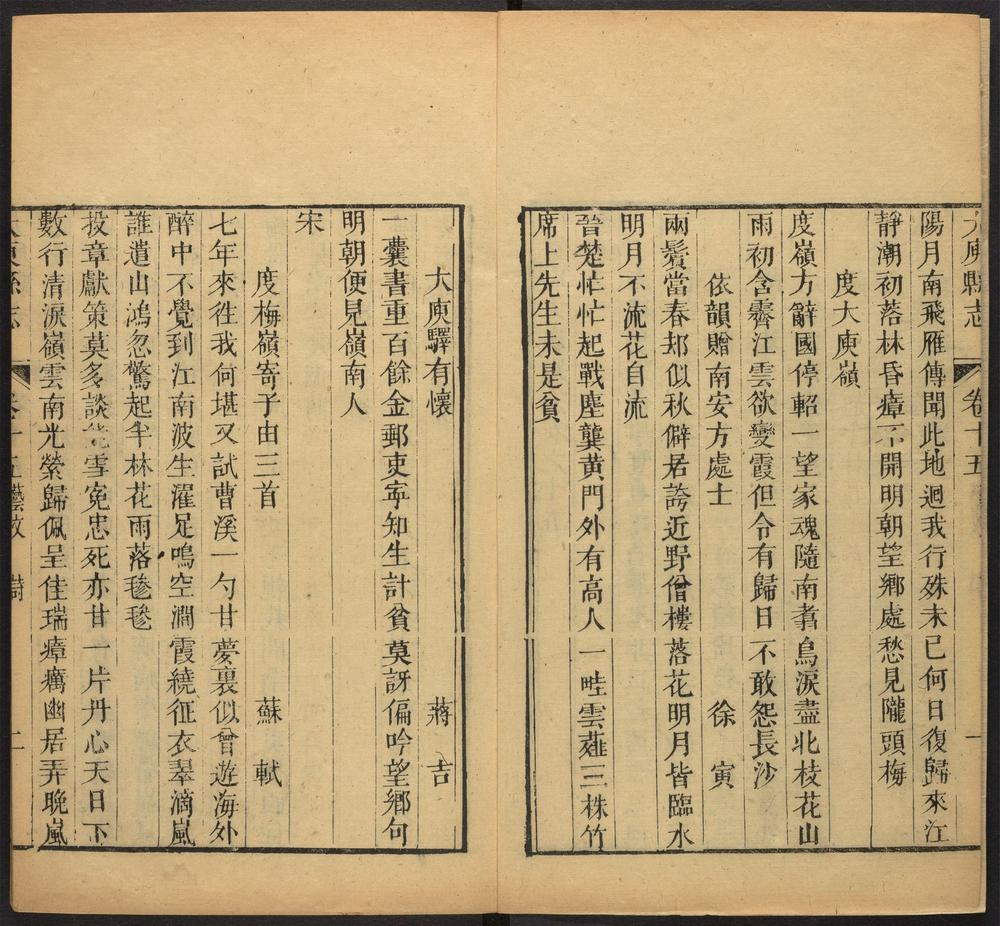 大庾縣志　卷十五　一
陽月南飛雁傳聞此地迴我行殊未已何日復歸來江
靜潮初落林昏瘴不開明朝望鄉處愁見隴頭梅
度大庾嶺
度嶺方辭國停軺一望家魂隨南翥鳥淚盡北枝花山
雨初含霽江雲欲變霞但令有歸日不敢怨長沙
依韻贈南安方處士　徐寅
兩鬢當春却似秋僻居誇近野僧樓落花明月皆臨水
明月不流花自流
晉楚忙忙起戰塵龔黃門外有高人一畦雲薤三株竹
席上先生未是貧
大庾驛有懷　蔣吉
一囊書重百餘金郵吏寧知生計貧莫訝偏吟望鄉句
明朝便見嶺南人
宋
度梅嶺寄子由三首　蘇軾
七年來往我何堪又試曹溪一勺甘夢裏似曾遊海外
醉中不覺到江南波生濯足鳴空澗霞繞征衣翠滴嵐
誰遣山鴻忽驚起半林花雨落毿毿
投章獻策莫多談　雪寃忠死亦甘一片丹心天日下
數行清淚嶺雲南光縈歸佩呈佳瑞瘴癘幽居弄晚嵐
大庾縣志　卷十五藝文　詩　二